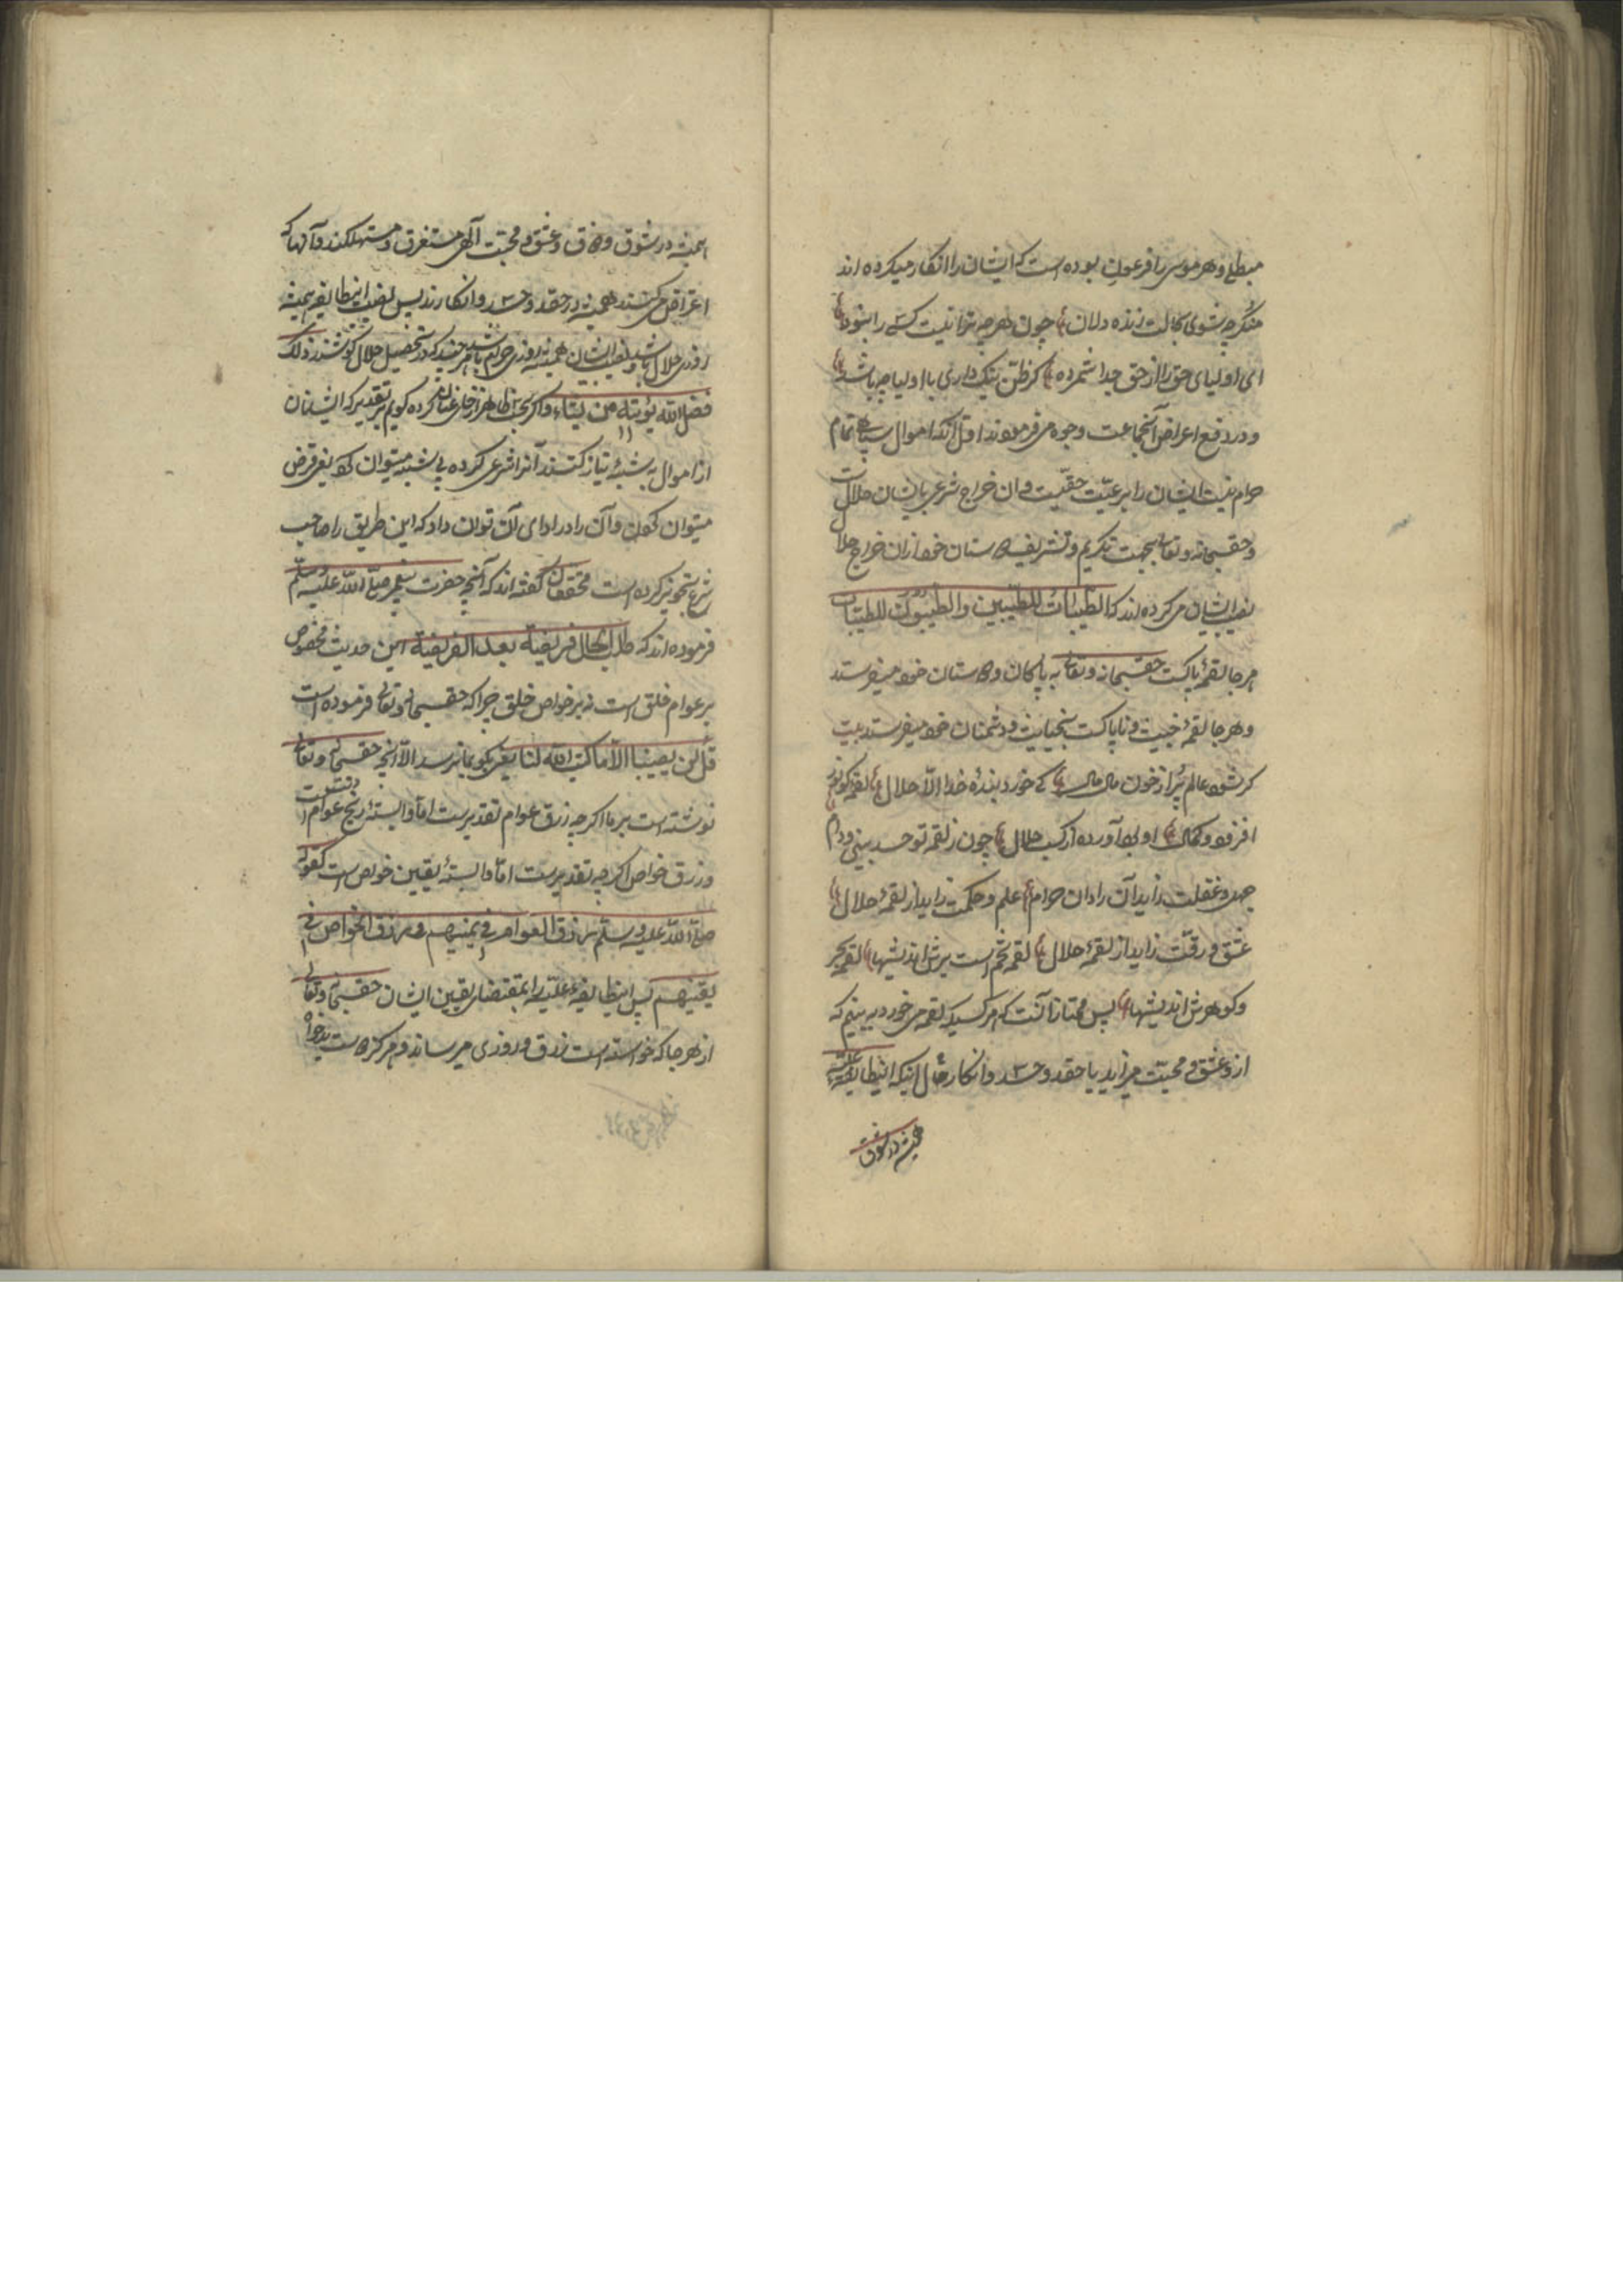 مبطلی و هر موسی را فرعونی بوده است که ایشان را انکار میکرده اند
منکر چه شوی بحالت زنده دلان چون هر چه ترا نیست کسی را نبود
ای اولیای حق را از حق جدا شمرده کر ظن نیک داری با اولیا چه باشد
و در دفع اعراض آنجماعت وجوه می فرمودند اول آنکه اموال تمام
حرام نیست ایشان را بر رعیت حقیست و آن خراج شرعی بایشان حلال است
و حقسبحانه و تعالی بجهت تکریم و تشریف دوستان خود از آن خراج حلال
نصیب ایشان می کرده اند که الطیبات للطیبین والطیبون للطیبات
هر جا لقمهٔ پاکست حقسبحانه و تعالی به پاکان و دوستان خود میفرستد
و هر جا لقمهٔ خبیث و ناپاکست بخبیثان و دشمنان خود میفرستد بیت
کر شود عالم پر از خون مال مال کی خورد بندهٔ خدا الا حلال لقمه کو نور
افزود و کمال او بود آورده از کسب حلال چون ز لقمه تو حسد بینی و دام
جهل و غفلت زاید آن را دان حرام علم و حکمت زاید از لقمهٔ حلال
عشق و رقت زاید از لقمهٔ حلال لقمه تخم است برش اندیشها لقمه بحر
و کوهرش اندیشها پس ممتاز آنست که هر کسیکه لقمه می خورد ببینیم که
ازو عشق و محبت میزاید یا حقد و حسد و انکار حال اینکه اینطایفه علیه
همیشه در شوق
همیشه در شوق و ذوق و عشق و محبت آلهی مستغرق و مستهلکند و آنها که
اعتراض می کنند همیشه در حقد و حسد و انکارند پس نصیب اینطایفه همیشه
روزی حلال باشد و نصیب ایشان همیشه روزی حرام باشد هر چند که در تحصیل حلال کوشند ذلک
فضل الله یؤتیه من یشاء و اکر بحسب ظاهر کرده کویم بر تقدیر که ایشان
از اموال به شبهٔ نیاز کنند آنرا شرعی کرده بی شبه میتوان کرد یعنی قرض
میتوان کرد و آن را در ادای آن توان داد که این طریق را صاحب
شرع تجویز کرده است محققان کفته اند که آنچه حضرت پیغمبر صلی الله علیه وسلم
فرموده اند که طلب الحلال فریضة بعد الفریضة این حدیث مخصوص
بر عوام خلق است نه بر خواص خلق چرا که حقسبحانه و تعالی فرموده است
قل لن یصیبنا الا ما کتب الله لنا یعنی بکو بما نرسد الا آنچه حقسبحانه و تعالی
نوشته است بر ما اکر چه رزق عوام بتقدیرست اما وابستهٔ رنج عوام است
و رزق خواص اکر چه بتقدیرست اما وابستهٔ یقین خواص است کقوله
صلی الله علیه وسلم رزق العوام فی یمینهم و رزق الخواص فی
یقینهم پس اینطایفهٔ علیه را بمقتضای یقین ایشان حقسبحانه و تعالی
از هر جا که خواسته است رزق و روزی می رساند و هر کز دست